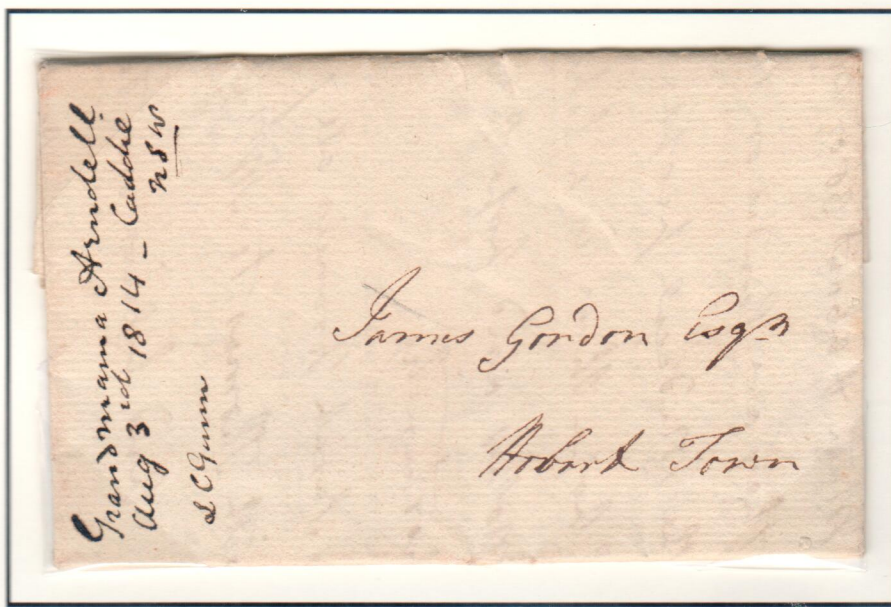 Grandmama Arndell
Aug 3rd 1814 - Caddie
NSW
L C Gunn
James Gordon Esqr
Hobart Town